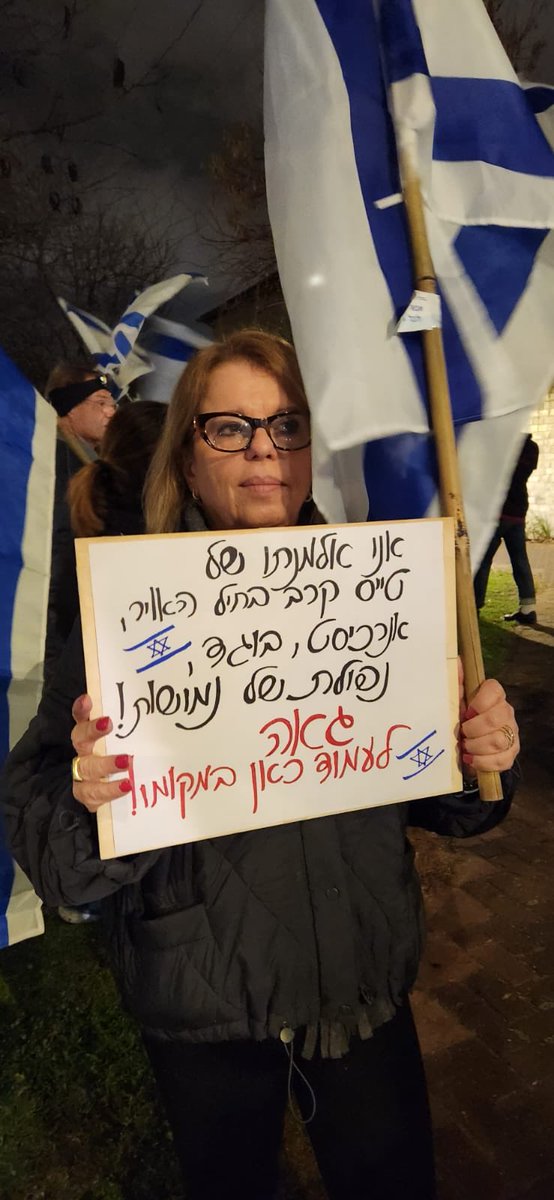 אני אלמנתו של
טייס קרב בחיל האויר,
אנרכיסט, בוגד,
נפולת של נמושות!
גאה
לעמוד כאן במקומו!